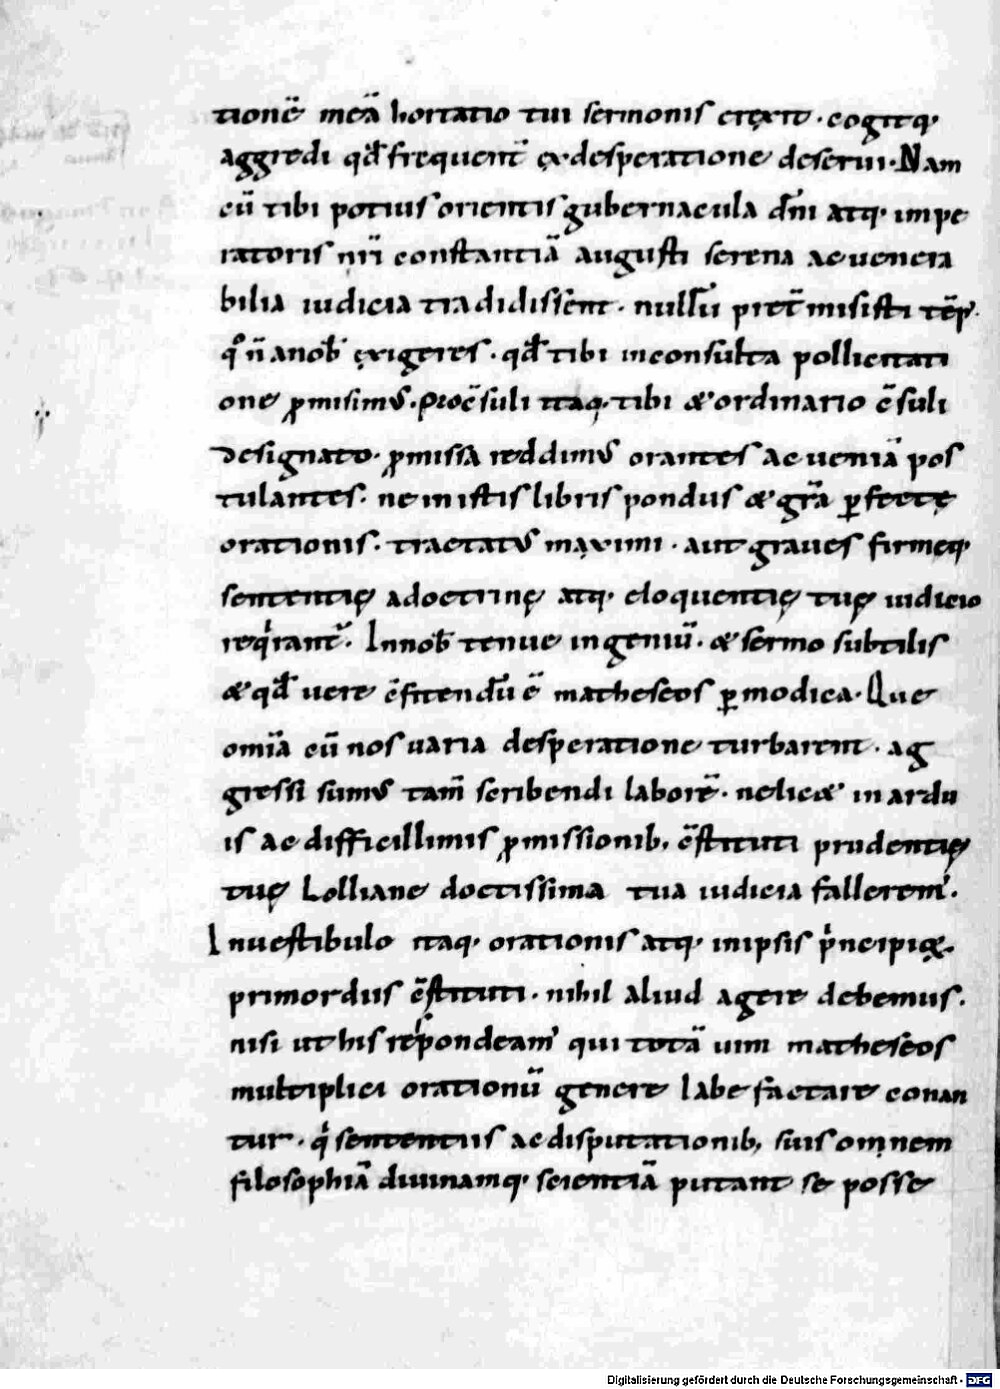 tionē meā hortatio tui sermonis erexit · cogitq;
aggredi qđ frequent̄ ex desperatione deserui · Nam
cū tibi potius orientis gubernacula dn̄i atq; impe
ratoris nr̄i constantiā augusti serena ac uenera
bilia iudicia tradidissent · nullū pret̄misisti tēp;
qͦ n̄ a nob̄ exigeres · qđ tibi inconsulta pollicitati
one ꝓmisimꝰ · Procōsuli itaq; tibi & ordinario cōsuli
designato · ꝓmissa reddimꝰ orantes ac ueniā pos
tulantes · ne in istis libris pondus & gr̄a ꝑfectę
orationis · tractatꝰ maximi · aut graues firmęq;
sententię a doctrinę atq; eloquentię tuę iudicio
reqͥrant̄ · In nob̄ tenue ingeniū · & sermo subtilis
& qđ uere c̄fitendū ē matheseos ꝑmodica · Que
om̄ia cū nos uaria desperatione turbarent · ag
gressi sumꝰ tam̄ scribendi laborē · ne lic& in ardu
is ac difficillimis ꝓmissionib; c̄stituti prudentię
tuę Lolliane doctissima tua iudicia falleremꝰ ·
In uestibulo itaq; orationis atq; in ipsis pͥncipioꝝ
primordiis c̄stituti · nihil aliud agere debemus ·
nisi ut his respondeamꝰ qui totā uim matheseos
multiplici orationū genere labefactare conan
tur · qͥ sententiis ac disputationib; suis omnem
filosophiā diuinamq; scientiā putant se posse
Digitalisierung gefördert durch die Deutsche Forschungsgemeinschaft - DFG